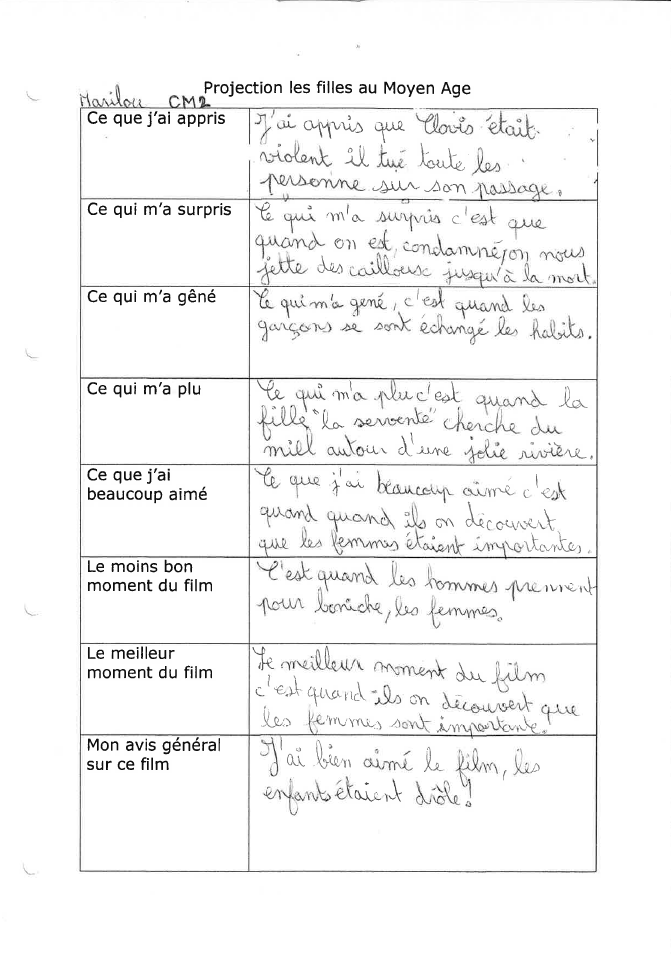 Projection les filles au Moyen Age
Marilou CM2
Ce que j'ai appris
J'ai appris que Clovis était
violent il tué toute les
personne sur son passage.
Ce qui m'a surpris
Ce qui m'a surpris c'est que
quand on est, condamné, on nous
jette des caillousc jusqu'à la mort.
Ce qui m'a gêné
Ce qui m'a gené, c'est quand les
garçons se sont échangé les habits.
Ce qui m'a plu
Ce qui m'a plu c'est quand la
fille "la servente" cherche du
miell autour d'une jolie rivière.
Ce que j'ai
beaucoup aimé
Ce que j'ai beaucoup aimé c'est
quand quand ils on découvert
que les femmes étaient importantes.
Le moins bon
moment du film
C'est quand les hommes prennent
pour boniche, les femmes.
Le meilleur
moment du film
Le meilleur moment du film
c'est quand ils on découvert que
les femmes sont importante.
Mon avis général
sur ce film
J'ai bien aimé le film, les
enfants étaient drôle!